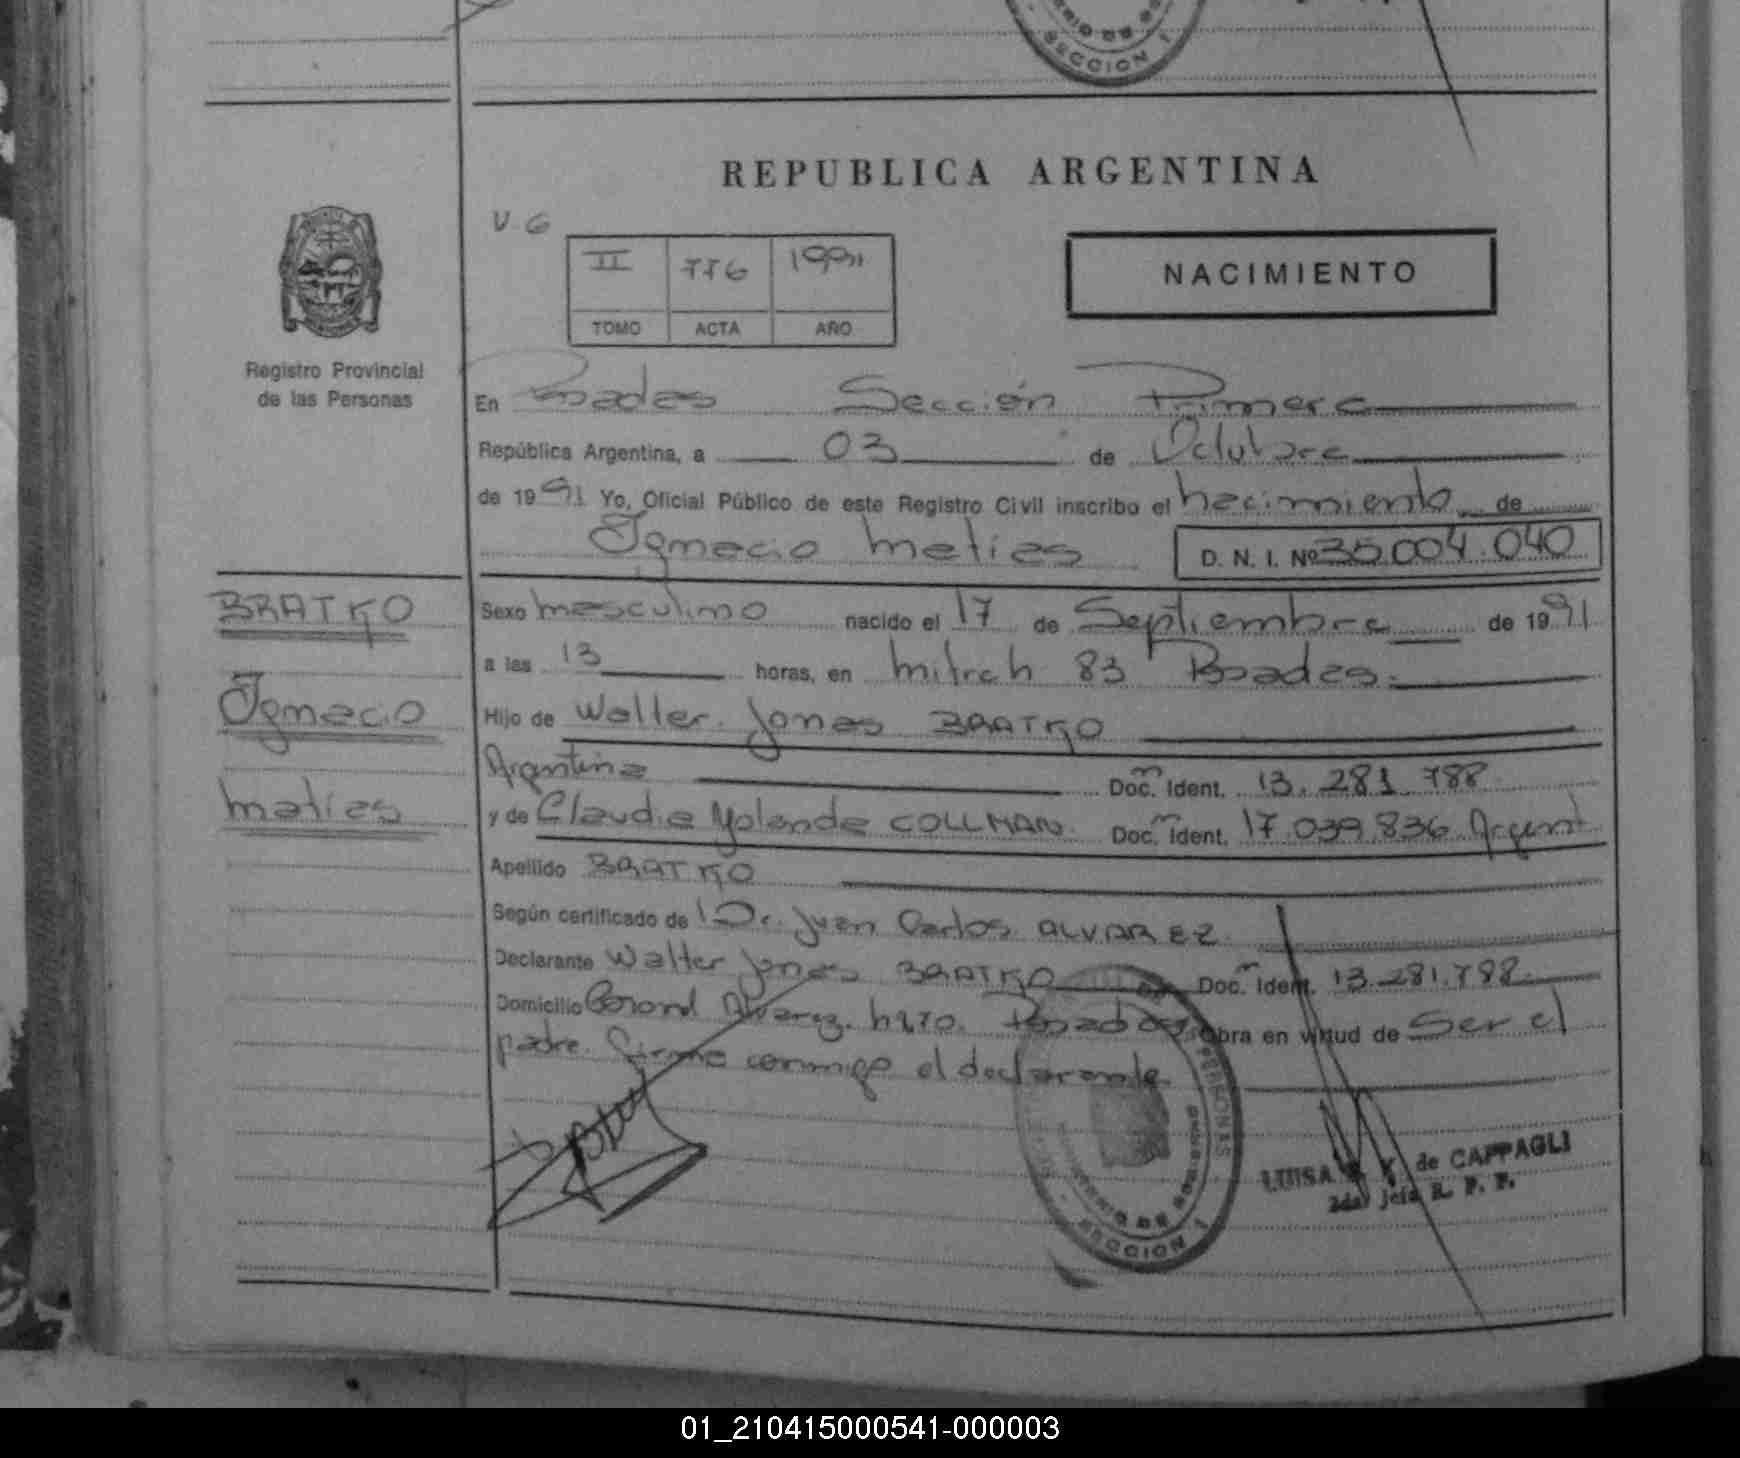 SECCION 1
REPUBLICA ARGENTINA
V. 6
II 776 1991
TOMO ACTA AÑO
NACIMIENTO
Registro Provincial
de las Personas
En Posadas Sección Primera
República Argentina, a 03 de Octubre
de 1991 Yo, Oficial Público de este Registro Civil inscribo el nacimiento de
Ignacio Matias D. N. I. Nº 35.004.040
BRATKO
Ignacio
Matias
Sexo masculino nacido el 17 de Septiembre de 1991
a las 13 horas, en Mitre 83 Posadas.
Hijo de Walter Jonas BRATKO
Argentina Doc. Ident. 13.281.788
y de Claudia Yolanda COLLMAN Doc. Ident. 17.039.836 Argent
Apellido BRATKO
Según certificado de Dr. Juan Carlos ALVAREZ
Declarante Walter Jonas BRATKO Doc. Ident. 13.281.788
Domicilio Coronel Alvarez. Posadas Obra en virtud de Ser el
padre. Firma conmigo el declarante.
PERSONAS
SECCION 1
LUISA de CAPPAGLI
2da Jefa R. P. P.
01_210415000541-000003